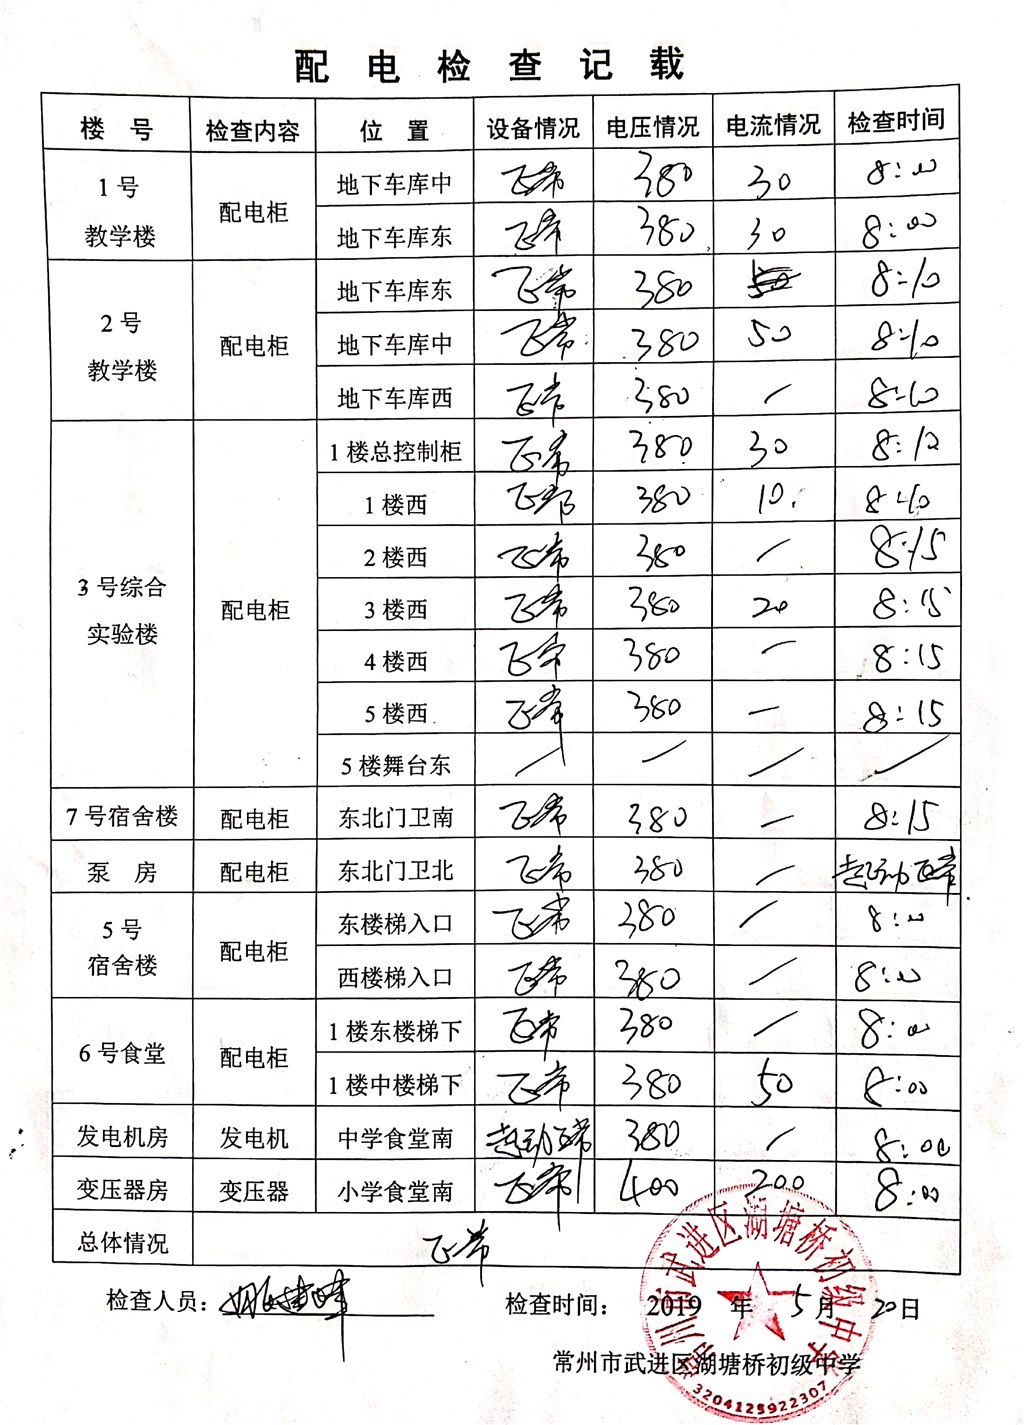 配电检查记载
楼号 检查内容 位置 设备情况 电压情况 电流情况 检查时间
1号教学楼 配电柜 地下车库中 正常 380 30 8:00
地下车库东 正常 380 30 8:00
2号教学楼 配电柜 地下车库东 正常 380 8:10
地下车库中 正常 380 50 8:10
地下车库西 正常 380 / 8:10
3号综合实验楼 配电柜 1楼总控制柜 正常 380 30 8:12
1楼西 正常 380 10. 8:10
2楼西 正常 380 / 8:15
3楼西 正常 380 20 8:15
4楼西 正常 380 一 8:15
5楼西 正常 380 一 8:15
5楼舞台东 / / / /
7号宿舍楼 配电柜 东北门卫南 正常 380 一 8:15
泵房 配电柜 东北门卫北 正常 380 / 起动正常
5号宿舍楼 配电柜 东楼梯入口 正常 380 / 8:00
西楼梯入口 正常 380 / 8:00
6号食堂 配电柜 1楼东楼梯下 正常 380 / 8:00
1楼中楼梯下 正常 380 50 8:00
发电机房 发电机 中学食堂南 起动正常 380 / 8:00
变压器房 变压器 小学食堂南 正常 400 200 8:00
总体情况 正常
检查人员： 检查时间： 2019年5月20日
常州市武进区湖塘桥初级中学
常州市武进区湖塘桥初级中学
3204125922307